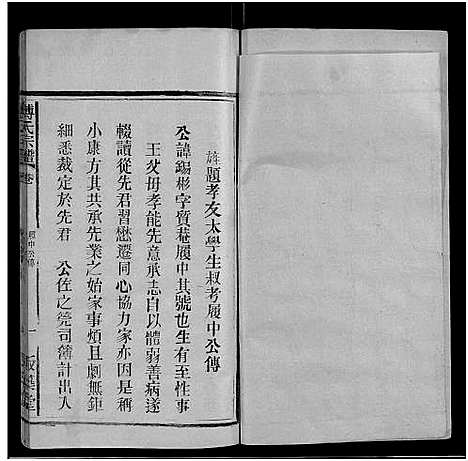 旌題孝友太學生叔考履中公傳
公諱錫彬字質菴履中其號也生有至性事
王父母孝能先意承志自以體弱善病遂
輟讀從先君習懋遷同心協力家亦因是稱
小康方其共承先業之始家事煩且劇無鉅
細悉裁定於先君 公佐之筦司簿計出入
氏宗譜
卷
履中公傳
一